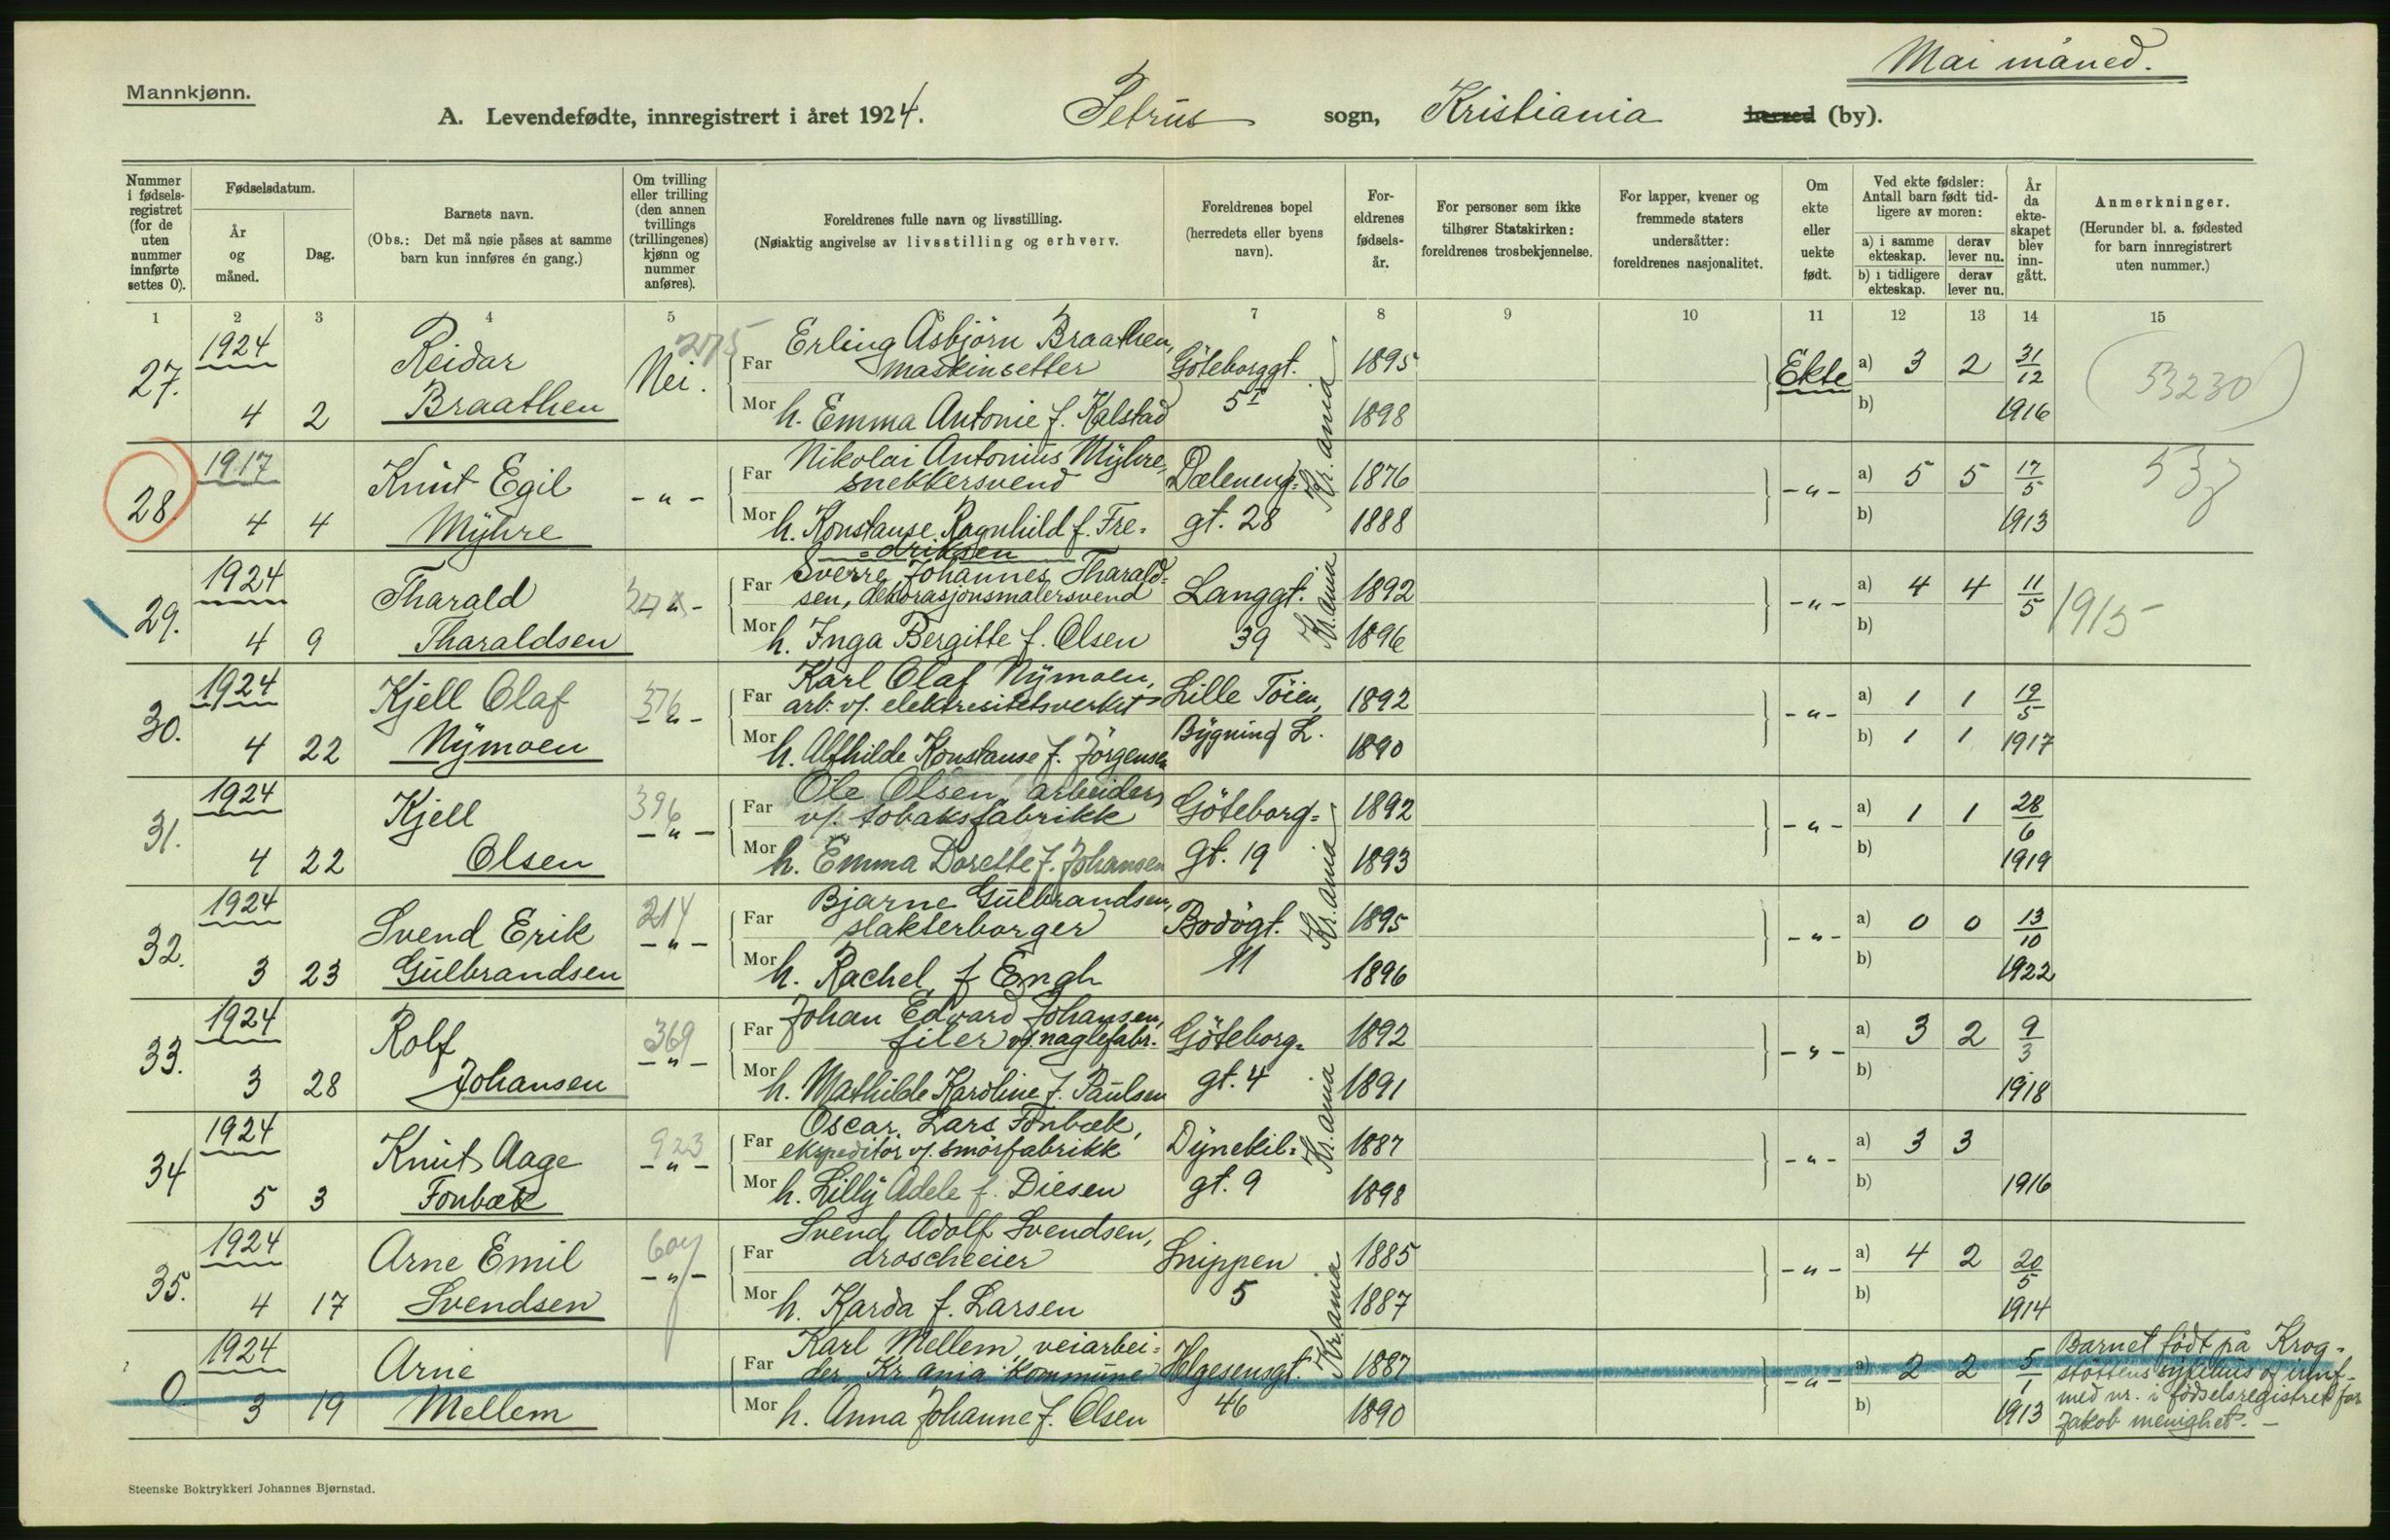 Mai måned.
Mannkjønn.
A. Levendefødte, innregistrert i året 1924. Petrus sogn, Kristiania herred (by).
Nummer i fødselsregistret (for de uten nummer innførte settes 0).
Fødselsdatum.
År og måned.
Dag.
Barnets navn.
(Obs.: Det må nøie påses at samme barn kun innføres én gang.)
Om tvilling eller trilling (den annen tvillings (trillingenes) kjønn og nummer anføres).
Foreldrenes fulle navn og livsstilling.
(Nøiaktig angivelse av livsstilling og erhverv.
Foreldrenes bopel (herredets eller byens navn).
Foreldrenes fødselsår.
For personer som ikke tilhører Statskirken: foreldrenes trosbekjennelse.
For lapper, kvener og fremmede staters undersåtter: foreldrenes nasjonalitet.
Om ekte eller uekte født.
Ved ekte fødsler: Antall barn født tidligere av moren:
a) i samme ekteskap.
derav lever nu.
b) i tidligere ekteskap.
derav lever nu.
År da ekteskapet blev inngått.
Anmerkninger.
(Herunder bl. a. fødested for barn innregistrert uten nummer.)
1 2 3 4 5 6 7 8 9 10 11 12 13 14 15
27. 1924 4 2 Reidar Braathen Nei. 275
Far Erling Asbjörn Braathen, maskinsetter Göteborggt. 5 I Kr.ania 1895 Ekte a) 3 2 31/12 53230
Mor h. Emma Antonie f. Kalstad 1898 b) 1916
28. 1917 4 4 Knut Egil Myhre -"-
Far Nikolai Antonius Myhre, snekkersvend Dæleneng= 1876 -"- a) 5 5 17/5
Mor h. Konstanse Ragnhild f. Fre=driksen gt. 28 1888 b) 1913
29. 1924 4 9 Tharald Tharaldsen
Far Sverre Johannes Tharald=sen, dekorasjonsmalersvend Langgt. 39 Kr.ania 1892 -"- a) 4 4 11/5 1915
Mor h. Inga Bergitte f. Olsen 1896 b)
30. 1924 4 22 Kjell Olaf Nymoen 376 -"-
Far Karl Olaf Nymoen, arb. v/. elektrisitetsverket Lille Töien, 1892 -"- a) 1 1 19/5
Mor h. Alfhilde Konstanse f. Jörgensen Bygning L. 1890 b) 1 1 1917
31. 1924 4 22 Kjell Olsen 396 -"-
Far Ole Olsen, arbeider v/. tobaksfabrikk Göteborg= 1892 -"- a) 1 1 28/6
Mor h. Emma Dorette f. Johansen gt. 19 Kr.ania 1893 b) 1919
32. 1924 3 23 Svend Erik Gulbrandsen 214 -"-
Far Bjarne Gulbrandsen, slakterborger Bodögt. 11 1895 -"- a) 0 0 13/10
Mor h. Rachel f Engh 1896 b) 1922
33. 1924 3 28 Rolf Johansen 369 -"-
Far Johan Edvard Johansen, filer v/. naglefabr. Göteborg= 1892 -"- a) 3 2 9/3
Mor h. Mathilde Karoline f. Paulsen gt. 4 Kr.ania 1891 b) 1918
34 1924 5 3 Knut Aage Fonbæk 923 -"-
Far Oscar Lars Fonbæk, ekspeditör v/. smörfabrikk Dynekil= 1887 -"- a) 3 3
Mor h. Lilly Adele f. Diesen gt. 9 1898 b) 1916
35. 1924 4 17 Arne Emil Svendsen -"-
Far Svend Adolf Svendsen, droscheeier Snippen 5 Kr.ania 1885 -"- a) 4 2 20/5
Mor h. Karda f. Larsen 1887 b) 1914
0 1924 3 19 Arne Mellem
Far Karl Mellem, veiarbei=der Kr.ania kommune Helgesensgt. 46 1887 -"- a) 2 2 5/1
Mor h. Anna Johanne f. Olsen 1890 b) 1913
Barnet födt på Krog=
stöttens sykehus og innf.
med nr. i födselsregistret for
Jakob menighet. -
Steenske Boktrykkeri Johannes Bjørnstad.